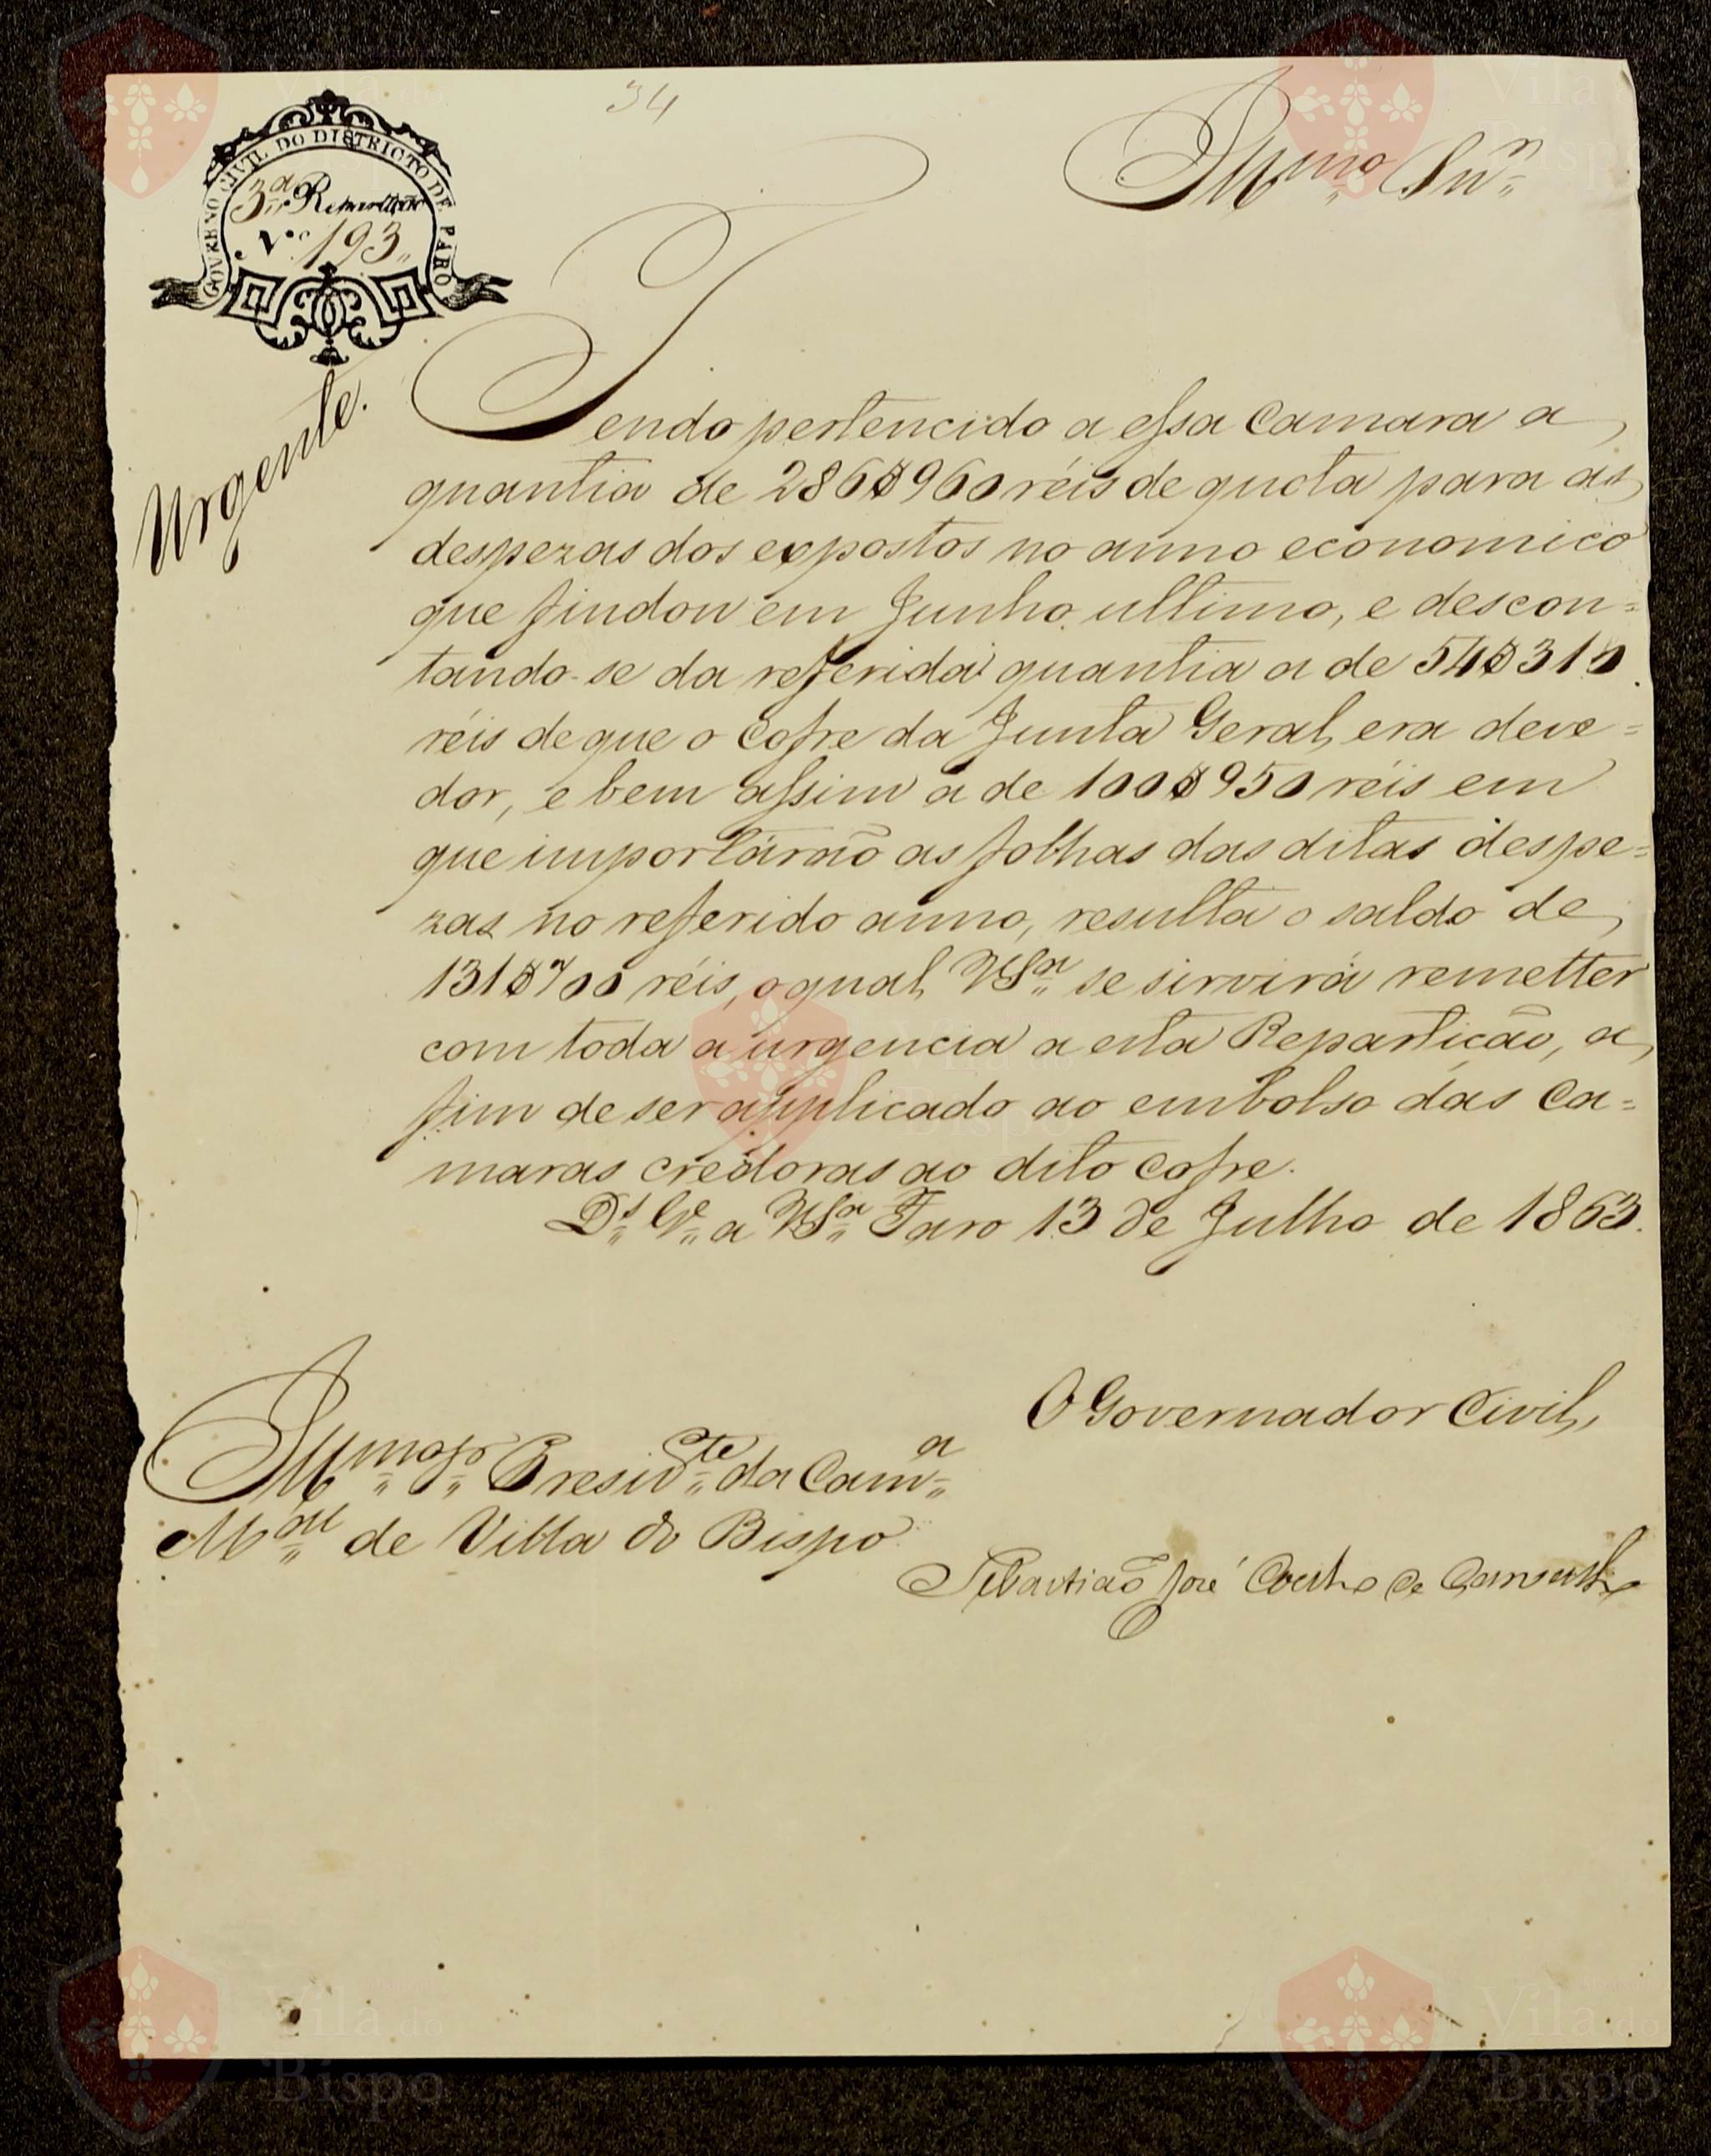 34
GOVERNO CIVIL DO DISTRICTO DE FARO
3.ª Repartição
N.º 193
Urgente.
Illmo Snr
Tendo pertencido a essa Camara a
quantia de 286$960 réis de quota para as
despezas dos expostos no anno economico
que findou em Junho ultimo, e descon=
tando-se da referida quantia a de 54$310
réis de que o Cofre da Junta Geral, era deve=
dor, e bem assim a de 100$950 réis em
que importárão as folhas das ditas despe=
zas no referido anno, resulta o saldo de
131$700 réis, o qual VSª se sirvirá remetter
com toda a urgencia a esta Repartição, a
fim de ser applicado ao embolso das Ca=
maras credoras ao dito Cofre.
Ds Ge a VSª Faro 13 de Julho de 1863.
O Governador Civil,
Illmo Sr Presidte da Camª
Mal de Villa do Bispo
Sebastião José Coelho de Carvalho
Vila do
Bispo